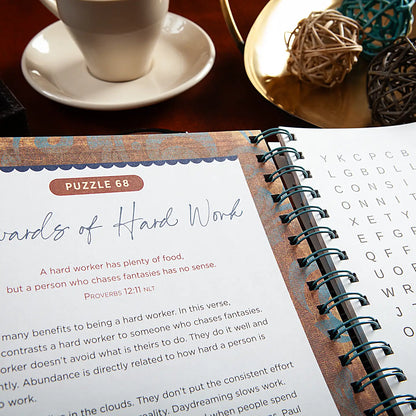 PUZZLE 68
wards of Hard Work
A hard worker has plenty of food,
but a person who chases fantasies has no sense.
PROVERBS 12:11 NLT
many benefits to being a hard worker. In this verse,
contrasts a hard worker to someone who chases fantasies.
orker doesn't avoid what is theirs to do. They do it well and
ntly. Abundance is directly related to how hard a person is
work.
in the clouds. They don't put the consistent effort
Daydreaming slows work.
when people spend
Paul
Y K C P C B
L G B D L
C O N S I
O N N I
X E T Y
E F G
Q P F
L O
U E
W R
J
O